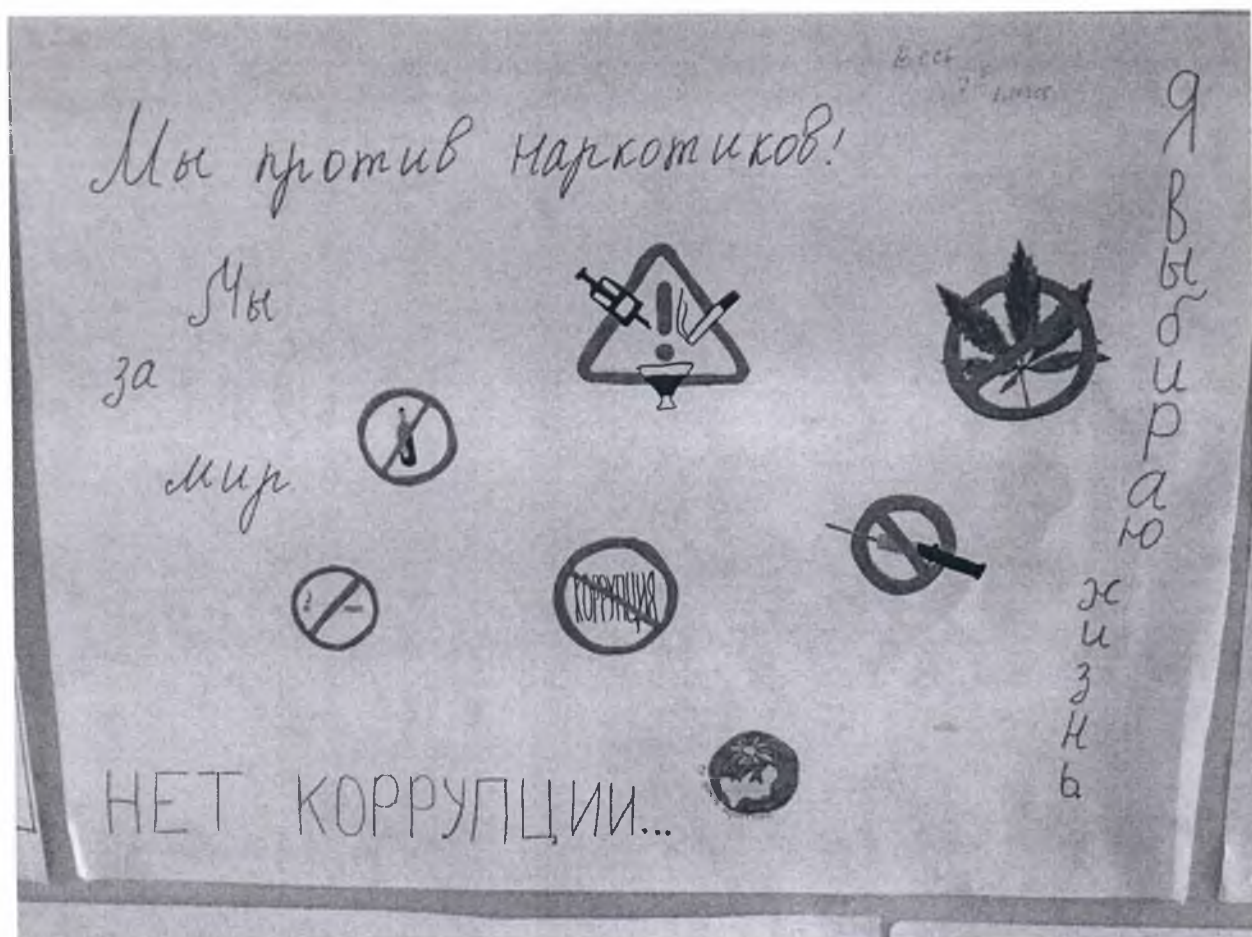 Мы против наркотиков!
Мы
за
мир
КОРРУПЦИЯ
НЕТ КОРРУПЦИИ...
Я выбираю жизнь